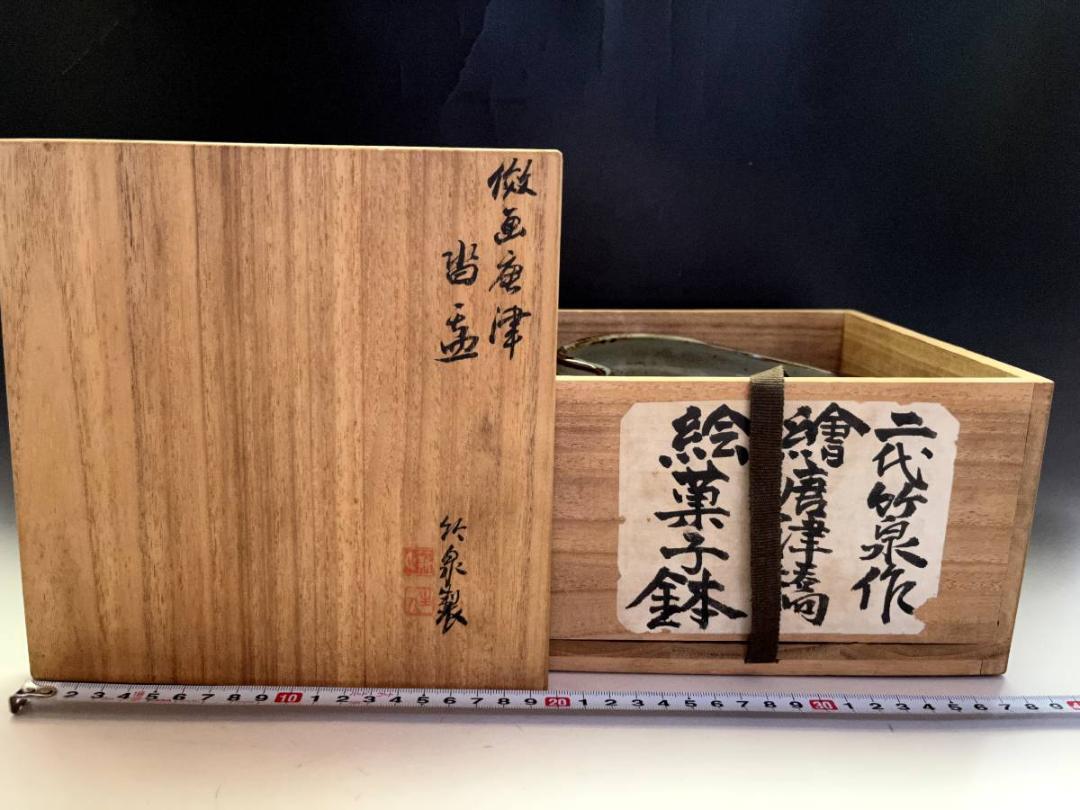 倣画唐津
沓盂
竹泉製
二代竹泉作
繪唐津橋
絵菓子鉢
2 3 4 5 6 7 8 9 10 1 2 3 4 5 6 7 8 9 20 1 2 3 4 5 6 7 8 9 30 1 2 3 4 5 6 7 8 9